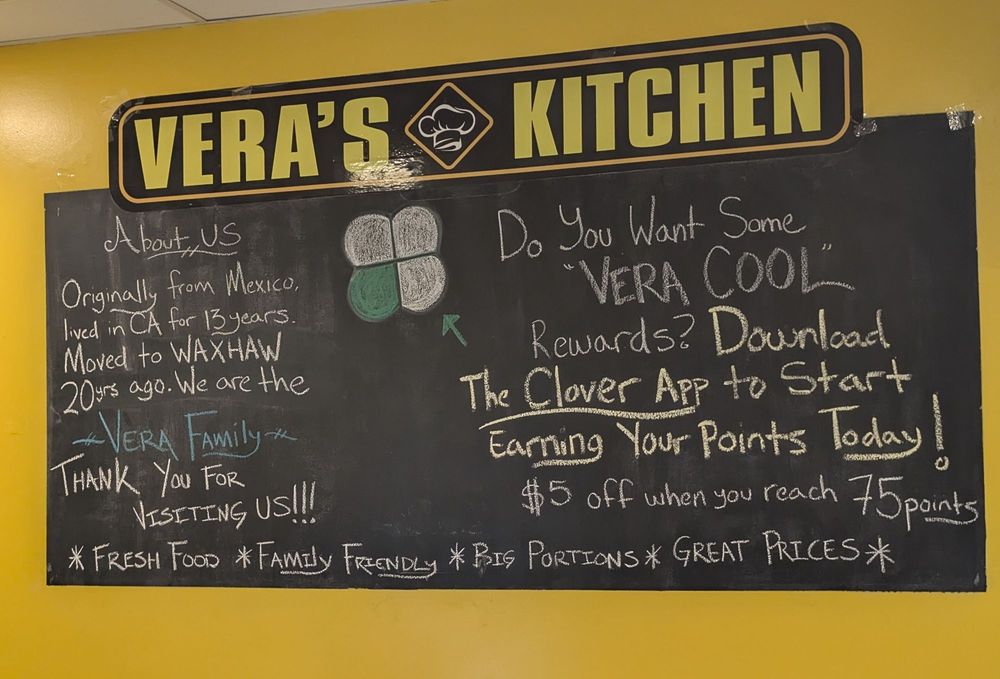 VERA'S KITCHEN
About US
Originally from Mexico,
lived in CA for 13 years.
Moved to WAXHAW
20yrs ago. We are the
VERA FAMILY
THANK YOU FOR
VISITING US!!!
Do You Want Some
"VERA COOL"
Rewards? Download
The Clover App to Start
Earning Your Points Today!
$5 off when you reach 75 points
* FRESH FOOD * FAMILY FRIENDLY * BIG PORTIONS * GREAT PRICES *